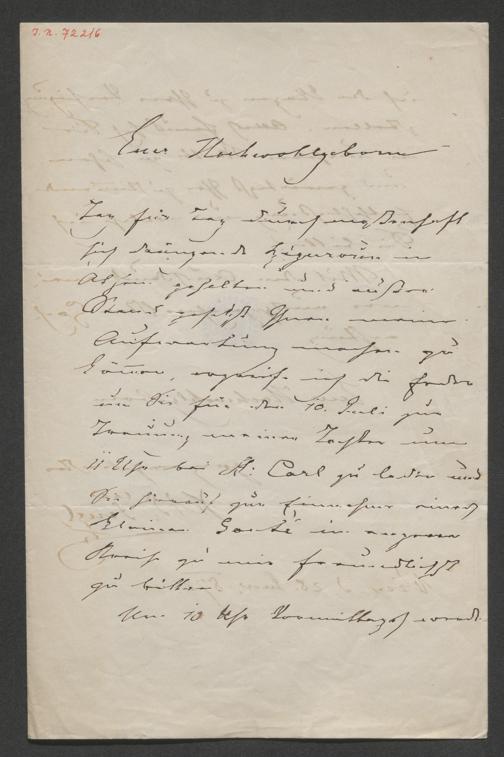 J. N. 72216
Euer Hochwohlgeboren
Tag für Tag durch massenhaft
sich drängende in
Athem gehalten und außer
Stand gesetzt Ihnen meine
Aufwartung machen zu
können, ergreife ich die Feder
um Sie für den 10. Juli zur
Trauung meiner Tochter um
11 Uhr bei St. Carl zu laden und
Sie hierauf zur Einnahme eines
kleinen Gouté in engerem
Kreise zu mir freundlichst
zu bitten.
Um 10 Uhr Vormittags